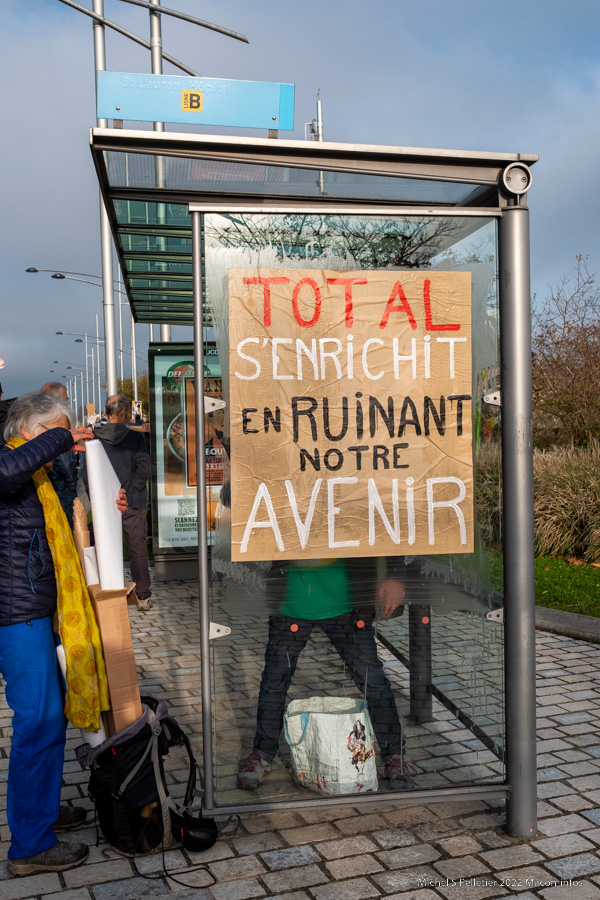 LIGNE B
TOTAL
S'ENRiCHiT
EN RUiNANT
NOTRE
AVENiR
SCANNEZ
Michel S Pelletier 2022 Macominfos